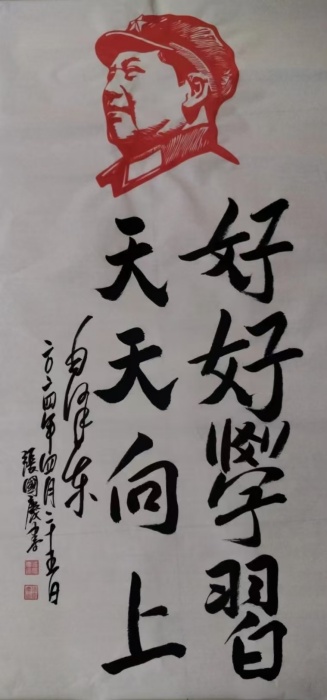 好好學習
天天向上
毛澤东
二〇二四年四月二十五日
張國慶書